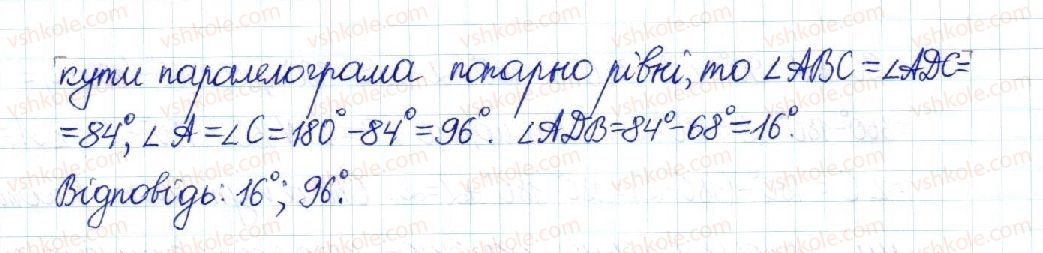 кути паралелограма попарно рівні, то ∠ABC = ∠ADC =
= 84°, ∠A = ∠C = 180° - 84° = 96°. ∠ADB = 84° - 68° = 16°.
Відповідь: 16°; 96°.